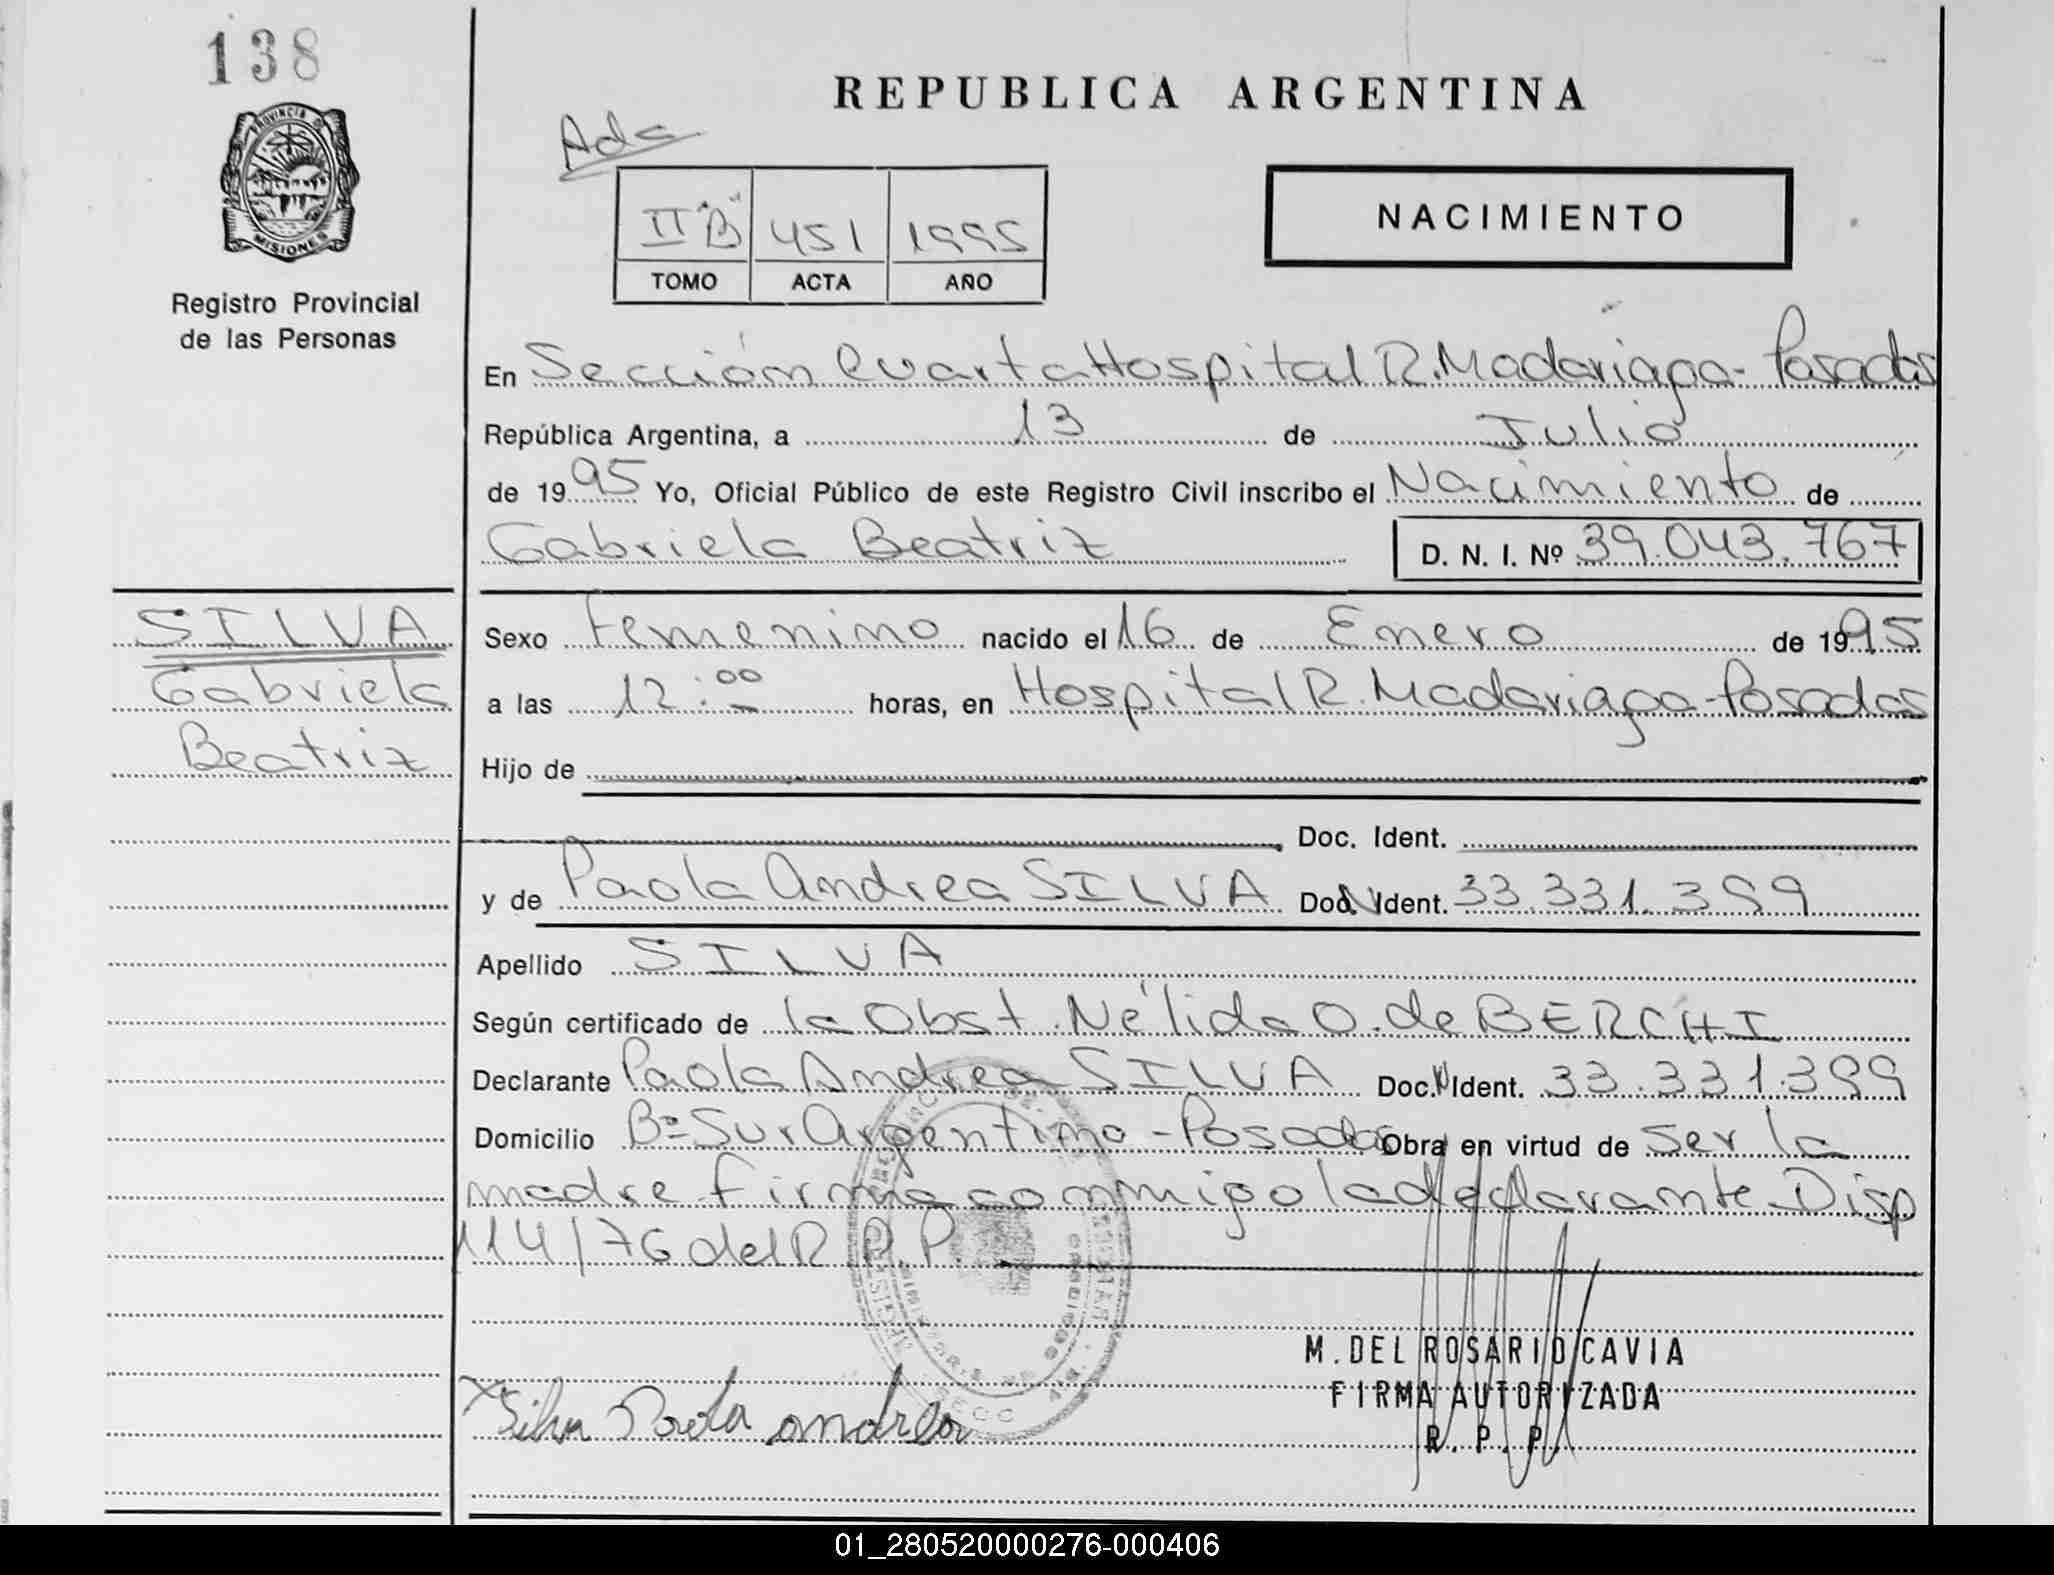 138
PROVINCIA DE
MISIONES
Registro Provincial
de las Personas
REPUBLICA ARGENTINA
Ada
II "B" 451 1995
TOMO ACTA AÑO
NACIMIENTO
En Sección Cuarta Hospital R. Madariaga - Posadas
República Argentina, a 13 de Julio
de 1995 Yo, Oficial Público de este Registro Civil inscribo el Nacimiento de
Gabriela Beatriz D. N. I. Nº 39.043.767
SILVA
Gabriela
Beatriz
Sexo Femenino nacido el 16 de Enero de 1995
a las 12:00 horas, en Hospital R. Madariaga - Posadas
Hijo de
Doc. Ident.
y de Paola Andrea SILVA Doc. Ident. 33.331.399
Apellido SILVA
Según certificado de la Obst. Nélida O. de BERCHI
Declarante Paola Andrea SILVA Doc. Ident. 33.331.399
Domicilio Bº Sur Argentino - Posadas Obra en virtud de ser la
madre firma conmigo la declarante Disp
114/76 del R.P.P.
M. DEL ROSARIO CAVIA
FIRMA AUTORIZADA
R. P. P.
Silva Paola andrea
01_280520000276-000406